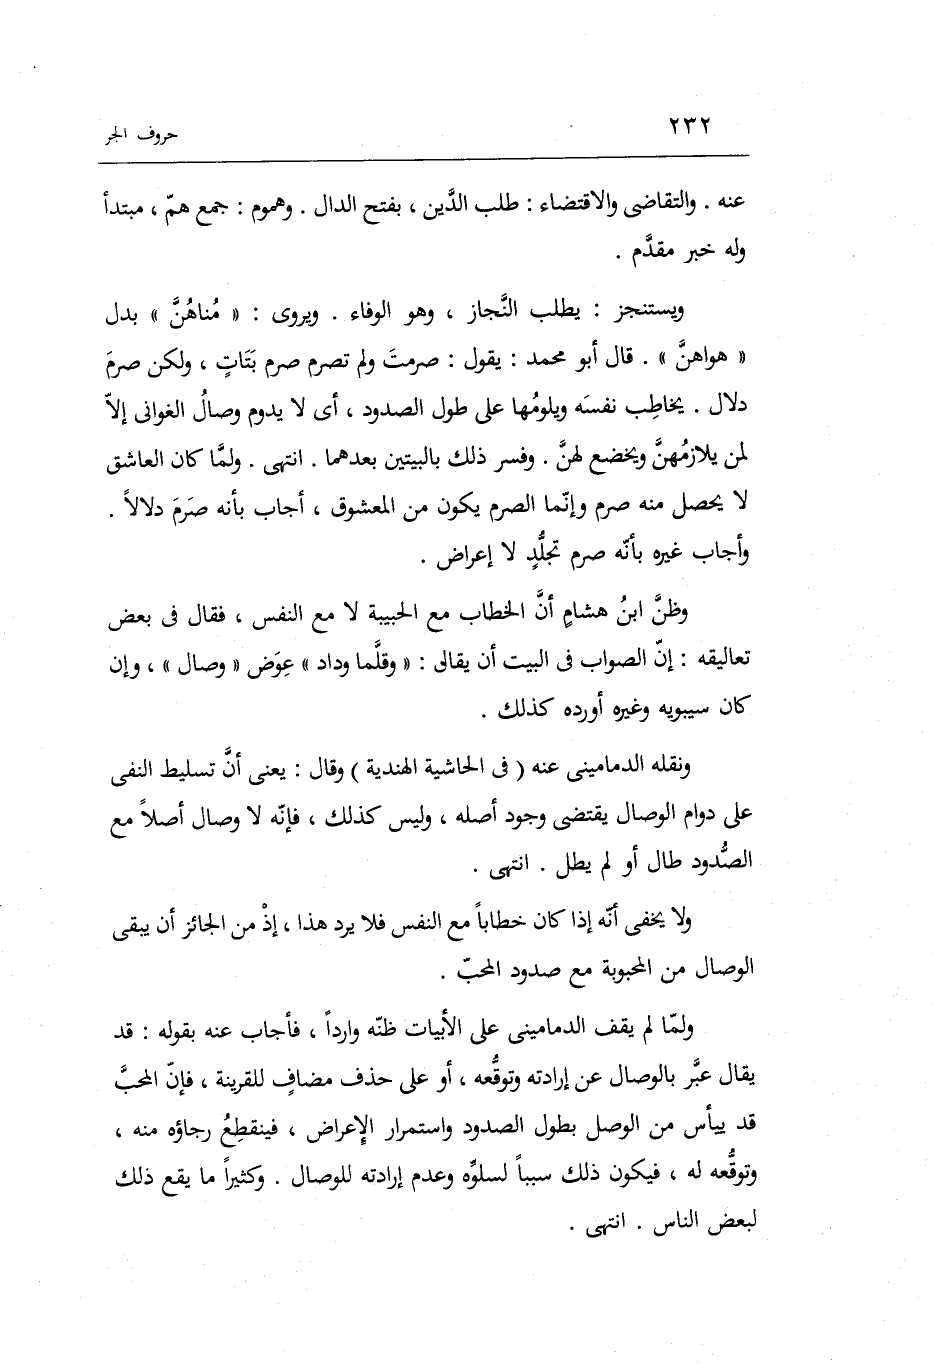 ٢٣٢
حروف الجر
عنه . والتقاضى والاقتضاء : طلب الدَّين ، بفتح الدال . وهموم : جمع همّ ، مبتدأ
وله خبر مقدَّم .
ويستنجز : يطلب النَّجاز ، وهو الوفاء . ويروى : « مُناهُنَّ » بدل
« هواهنَّ » . قال أبو محمد : يقول : صرمتَ ولم تصرم صرم بَتَاتٍ ، ولكن صرمَ
دلال . يخاطِب نفسَه ويلومُها على طول الصدود ، أى لا يدوم وصالُ الغوانى إلاّ
لمن يلازمُهنَّ ويخضع لهنَّ . وفسر ذلك بالبيتين بعدهما . انتهى . ولمَّا كان العاشق
لا يحصل منه صرم وإنّما الصرم يكون من المعشوق ، أجاب بأنه صَرَمَ دلالاً .
وأجاب غيره بأنّه صرم تجلُّدٍ لا إعراض .
وظنَّ ابنُ هشامٍ أنَّ الخطاب مع الحبيبة لا مع النفس ، فقال فى بعض
تعاليقه : إنّ الصواب فى البيت أن يقالى : « وقلَّما وداد » عِوَض « وصال » ، وإن
كان سيبويه وغيره أورده كذلك .
ونقله الدمامينى عنه ( فى الحاشية الهندية ) وقال : يعنى أنَّ تسليط النفى
على دوام الوصال يقتضى وجود أصله ، وليس كذلك ، فإنّه لا وصال أصلاً مع
الصُّدود طال أو لم يطل . انتهى .
ولا يخفى أنّه إذا كان خطاباً مع النفس فلا يرد هذا ، إذْ من الجائز أن يبقى
الوصال من المحبوبة مع صدود المحبّ .
ولمّا لم يقف الدمامينى على الأبيات ظنّه وارداً ، فأجاب عنه بقوله : قد
يقال عبَّر بالوصال عن إرادته وتوقُّعه ، أو على حذف مضافٍ للقرينة ، فإنّ المحبَّ
قد ييأس من الوصل بطول الصدود واستمرار الإعراض ، فينقطِعُ رجاؤه منه ،
وتوقُّعه له ، فيكون ذلك سبباً لسلوِّه وعدم إرادته للوصال . وكثيراً ما يقع ذلك
لبعض الناس . انتهى .